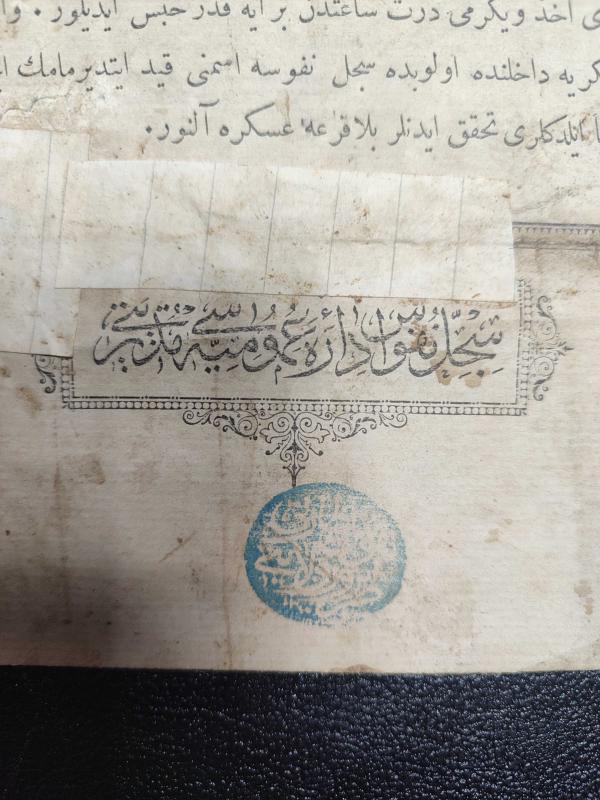 اخذ ويكرمى درت ساعتدن بر آيه قدر حبس ايديلور . وا
كريه داخلنده اولوبده سجل نفوسه اسمنى قيد ايتديرمامك ا
ايلدكلرى تحقق ايدنلر بلاقرعه عسكره آلنور.
سجل نفوس اداره عموميه سى مديريتى